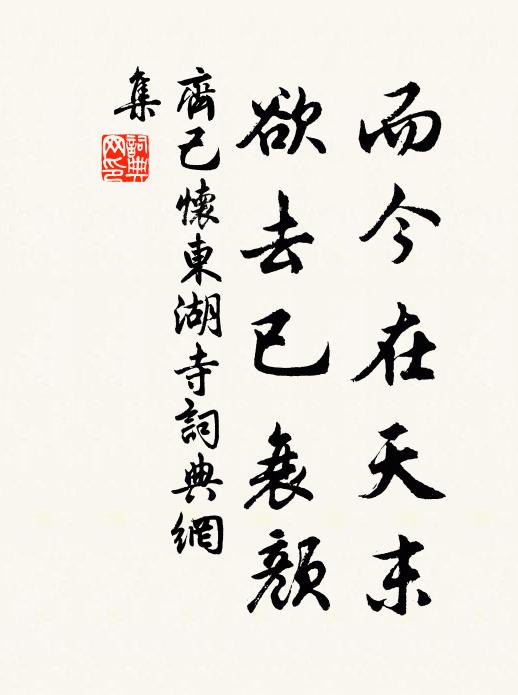 而今在天末
欲去已衰顏
齊己懷東湖寺詞典網
集
詞典
网印